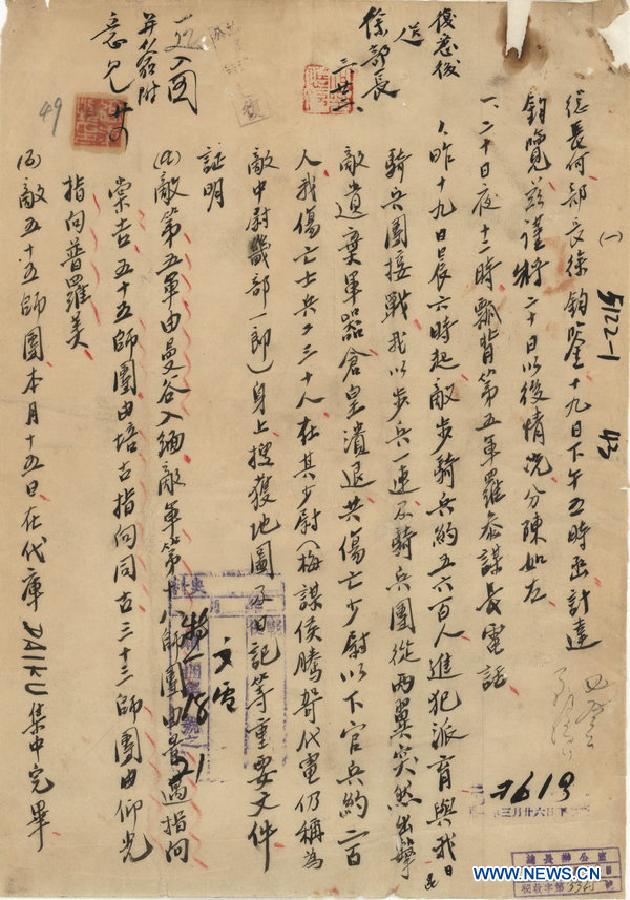 (一)
總長何部長徐鈞鑒十九日下午五時函計達
鈞覽茲謹將二十日以後情況分陳如左
一、二十日夜十二時飄背第五軍羅參謀長電話
1、昨十九日晨六時起敵步騎兵約五六百人進犯派育與我
騎兵團接戰我以步兵一連及騎兵團從兩翼突然出擊
敵遺棄軍器倉皇潰退共傷亡少尉以下官兵約二百
人我傷亡士兵二三十人在其少尉(梅謀侯騰哿代電仍稱為
敵中尉磯部一郎)身上搜獲地圖及日記等重要文件
証明
(a)敵第五軍由曼谷入緬敵軍第十八師團由景邁指向
棠吉五十五師團由培古指向同古三十三師團由仰光
指向普羅美
(b)敵五十五師團本月十五日在代庫DAIKU集中完畢
復卷後
送
徐部長
三、廿三
一廳入圖
並簽附
意見
49
5172-1
43
文電
特一18
21
7619
三月廿六日下
總長辦公室
5345
新华网
www.NEWS.CN